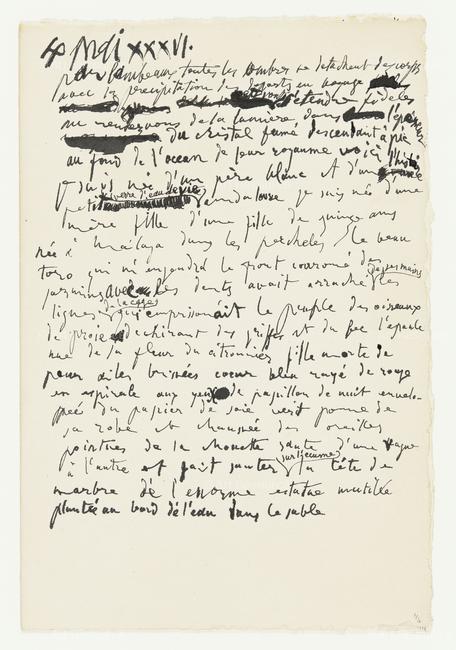 4 Mai XXXVI.
par lambeaux toutes les ombres se detachent des corps
avec la précipitation des departs en voyage
fideles
au rendez vous de la lumiere dans
du cristal fumé descendant à pic
au fond de l'ocean de leur royaume voici l'histoire
je suis né d'un père blanc et d'un
petit verre d'eau de vie andalouse je suis né d'une
mère fille d'une fille de quinze ans
née à Malaga dans les percheles le beau
toro qui m'engendra le front couronné de
jasmins avec les dents avait arraché de ses mains les
lignes de la cage qui emprisonnait le peuple des oiseaux
de proie dechirant des griffes et du bec l'epaule
nue de la fleur du citronnier fille morte de
peur ailes brisées coeur bleu rayé de rouge
en espirale aux yeux de papillon de nuit envelo-
ppée du papier de soie vert pomme de
sa robe et chaussée des oreilles
pointues de la chouette saute d'une vague
à l'autre et fait sauter sur l'ecume la tête de
marbre de l'enorme estatue mutilée
plantée au bord de l'eau dans le sable